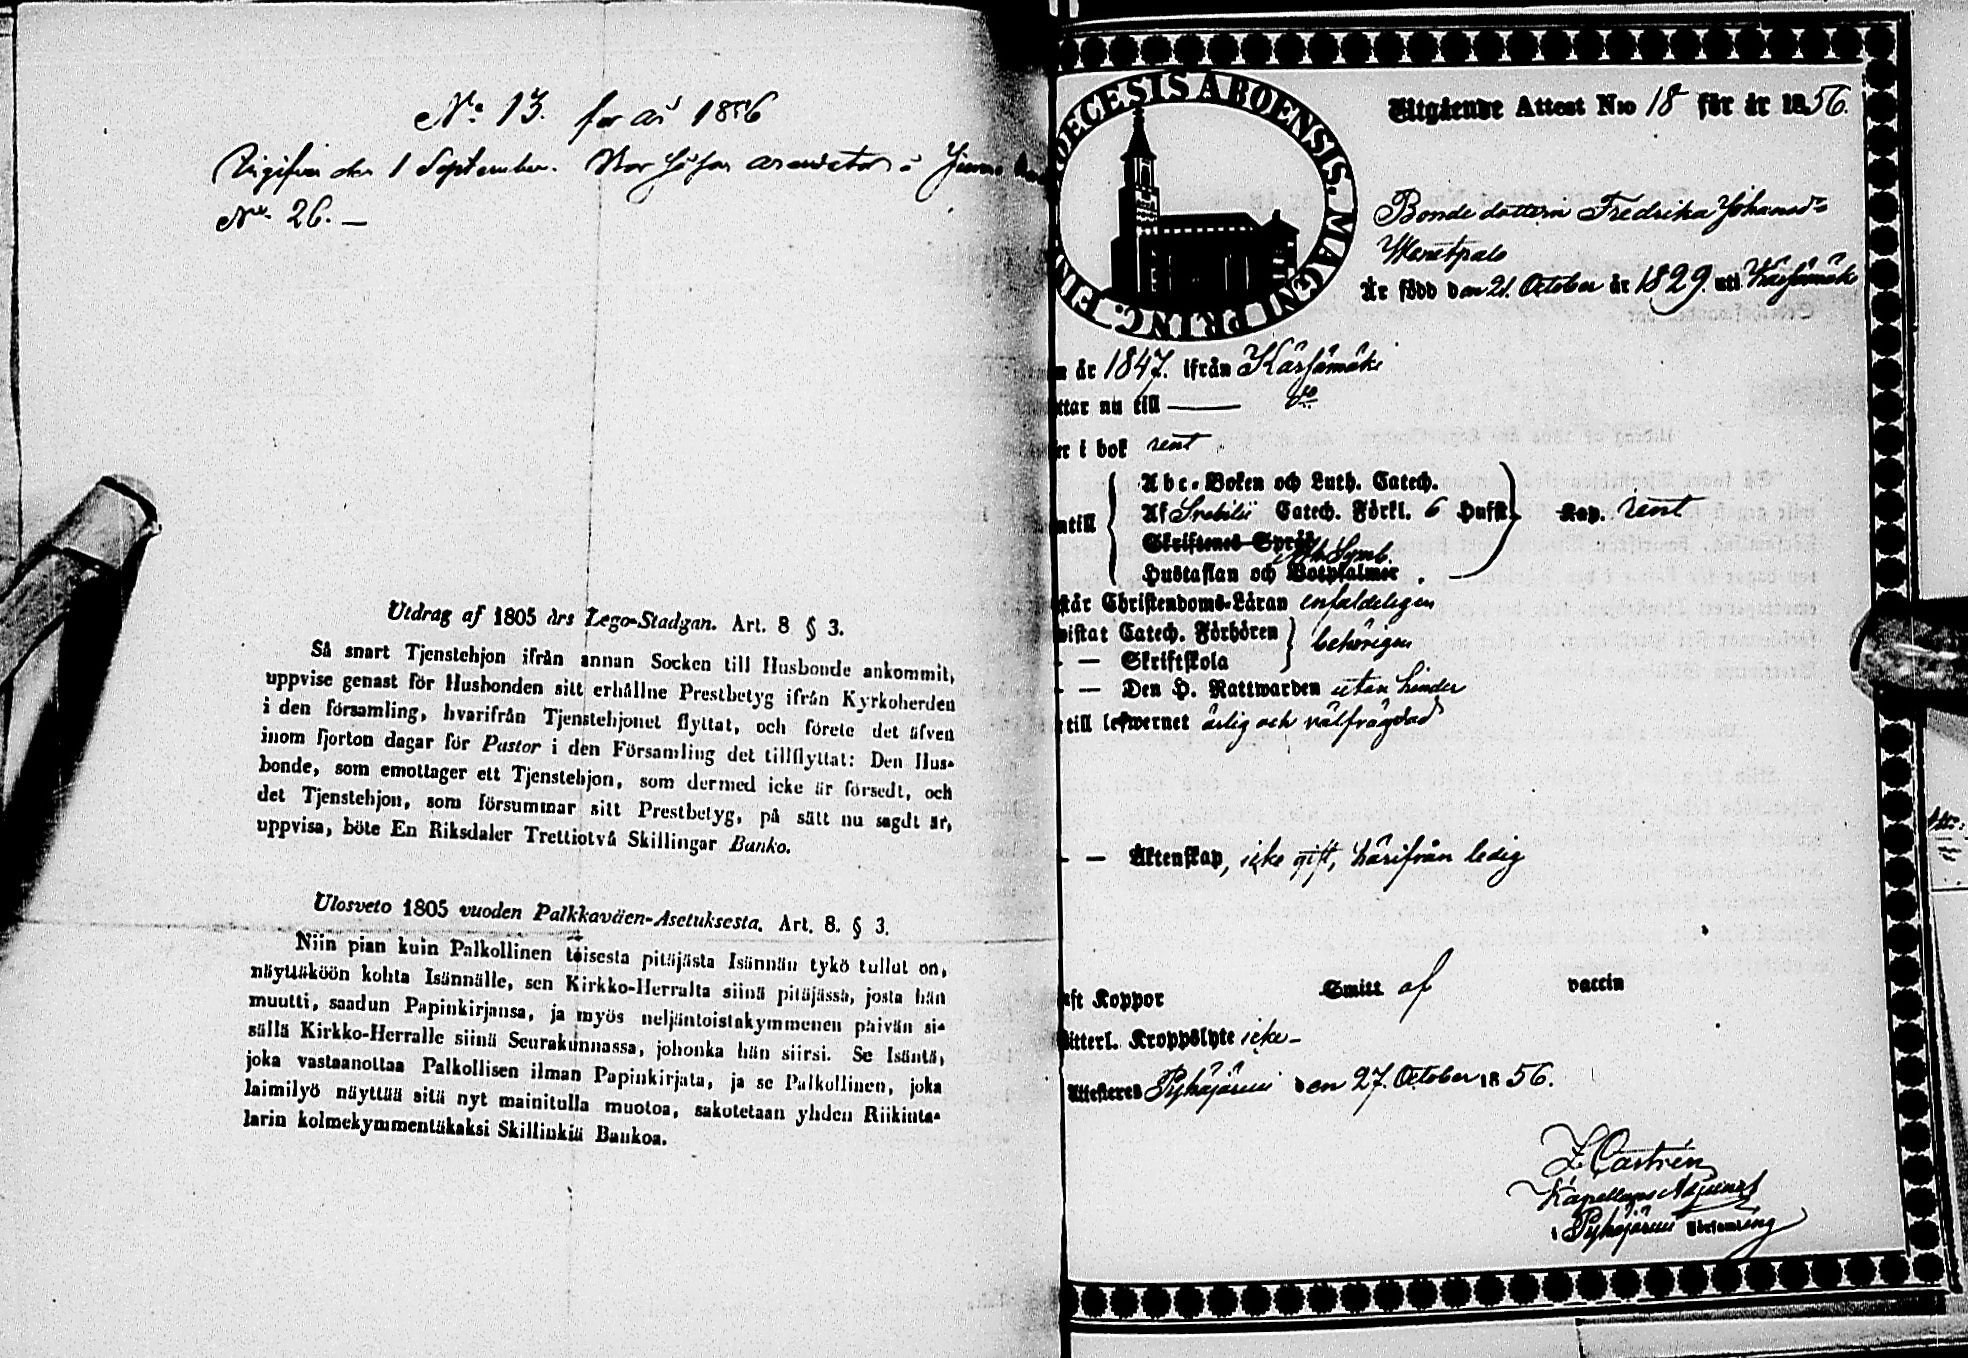 No 13. for år 1856
den 1 September.
No 26. —
Utdrag af 1805 års Lego-Stadgan. Art. 8 § 3.
Så snart Tjenstehjon ifrån annan Socken till Husbonde ankommit,
uppvise genast för Husbonden sitt erhållne Prestbetyg ifrån Kyrkoherden
i den församling, hvarifrån Tjenstehjonet flyttat, och förete det äfven
inom fjorton dagar för Pastor i den Församling det tillflyttat: Den Hus-
bonde, som emottager ett Tjenstehjon, som dermed icke är försedt, och
det Tjenstehjon, som försummar sitt Prestbetyg, på sätt nu sagdt är,
uppvisa, böte En Riksdaler Trettiotvå Skillingar Banko.
Ulosveto 1805 vuoden Palkkaväen-Asetuksesta. Art. 8. § 3.
Niin pian kuin Palkollinen toisesta pitäjästa Isännän tykö tullut on,
näyttäköön kohta Isännälle, sen Kirkko-Herralta siinä pitäjässä, josta hän
muutti, saadun Papinkirjansa, ja myös neljäntoistakymmenen päivän si-
sällä Kirkko-Herralle siinä Seurakunnassa, johonka hän siirsi. Se Isäntä,
joka vastaanottaa Palkollisen ilman Papinkirjata, ja se Palkollinen, joka
laimilyö näyttää sitä nyt mainitulla muotoa, sakotetaan yhden Riikinta-
larin kolmekymmentäkaksi Skillinkiä Bankoa.
DECESIS ABOENSIS. MAGNI PRINC. FIN
Utgående Attest No 18 för år 1856.
Bonde dottern Fredrika Johansd:
Är född den 21. October år 1829. uti Kärsämäki
n år 1847. ifrån Kärsämäki
ttar nu till —— do
er i bok rent
Abc-Boken och Luth. Catech.
ntill Af Svebilii Catech. Förkl. 6 Hufst. Kap. rent
Skriftenes Språk
Ath. Symb.
Hustaflan och Botpsalmer.
står Christendoms-Läran enfaldeligen
wistat Catech. Förhören behörigen
- — Skriftskola
- — Den H. Nattwarden utan hinder
till lefwernet ärlig och välfrägdad
- — Äktenskap, icke gift, härifrån ledig
aft Koppor Smitt af vaccin
Witterl. Kroppslyte icke —
Attesteres Pyhäjärvi den 27. October 1856.
Castrén
Kapellans Adjunct
i Pyhäjärvi Församling